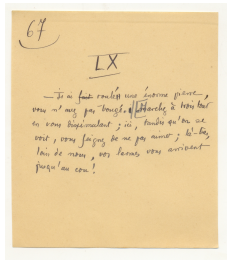 67
LX
— J'ai fait rouler une énorme pierre,
vous n'avez pas bougé. Marchez à trois tout
en vous dissimulant ; ici, tandis qu'on se
voit, vous feignez de ne pas aimer ; là-bas,
loin de nous, vos larmes vous arrivent
jusqu'au cou !